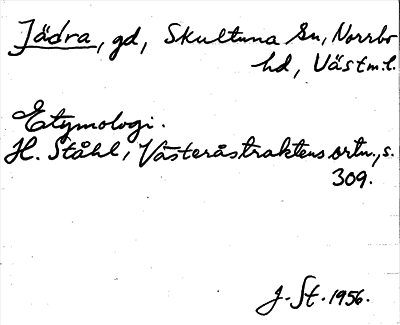 Jädra, gd, Skultuna sn, Norrbo
hd, Västm.l.
Etymologi.
H. Ståhl, Västeråstraktens ortn., s.
309.
J. St. 1956.